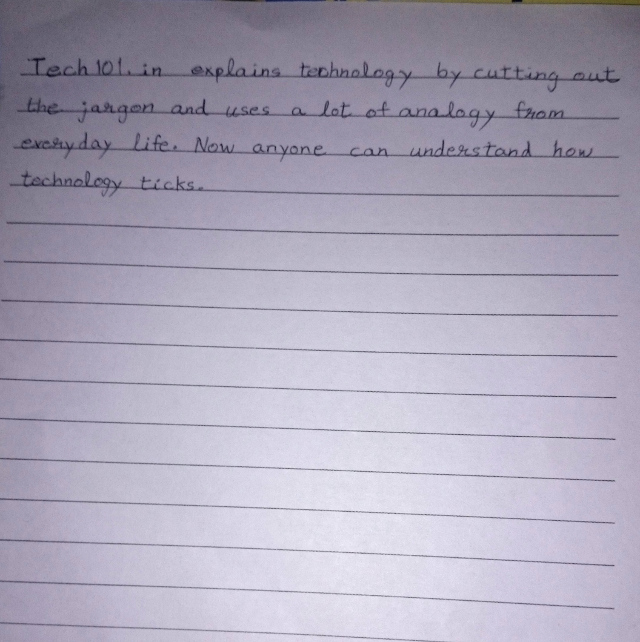 Tech101.in explains technology by cutting out
the jargon and uses a lot of analogy from
everyday life. Now anyone can understand how
technology ticks.